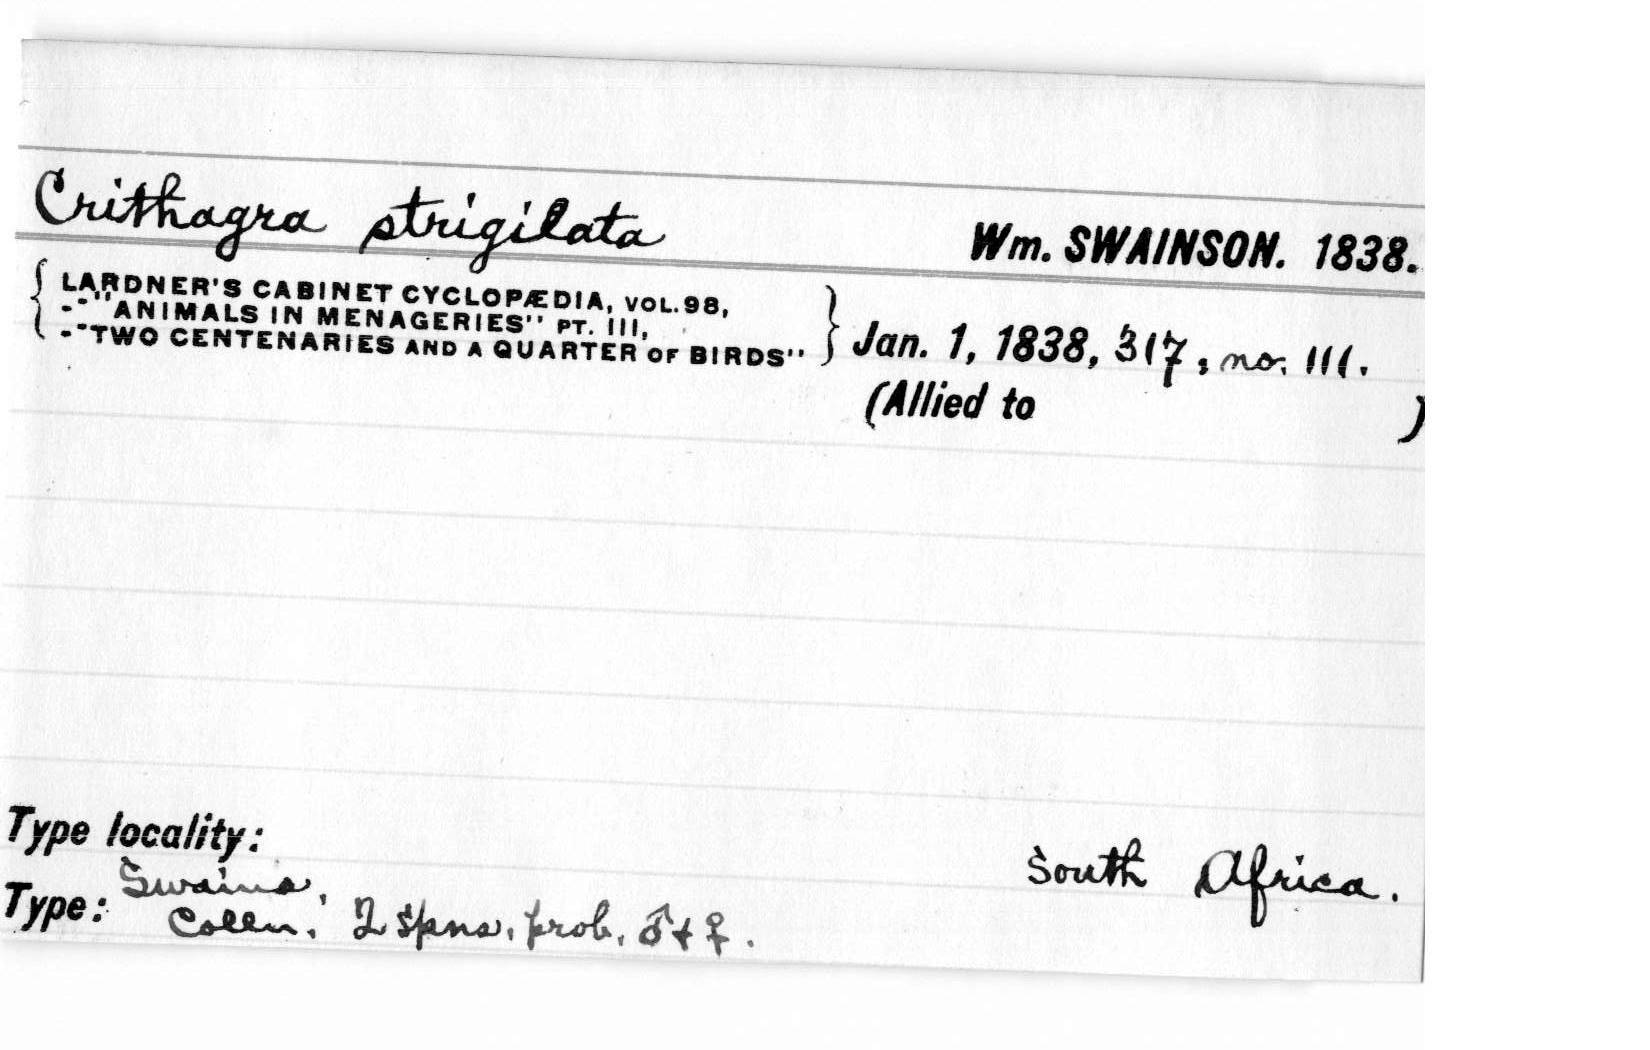 Crithagra strigilata Wm. SWAINSON. 1838.
{ LARDNER'S CABINET CYCLOPÆDIA, VOL. 98,
--"ANIMALS IN MENAGERIES" PT. III,
--"TWO CENTENARIES AND A QUARTER OF BIRDS" } Jan. 1, 1838, 317, no. 111.
(Allied to )
Type locality: South Africa.
Swains.
Type: Colln. 2 spns. prob. ♂ + ♀.